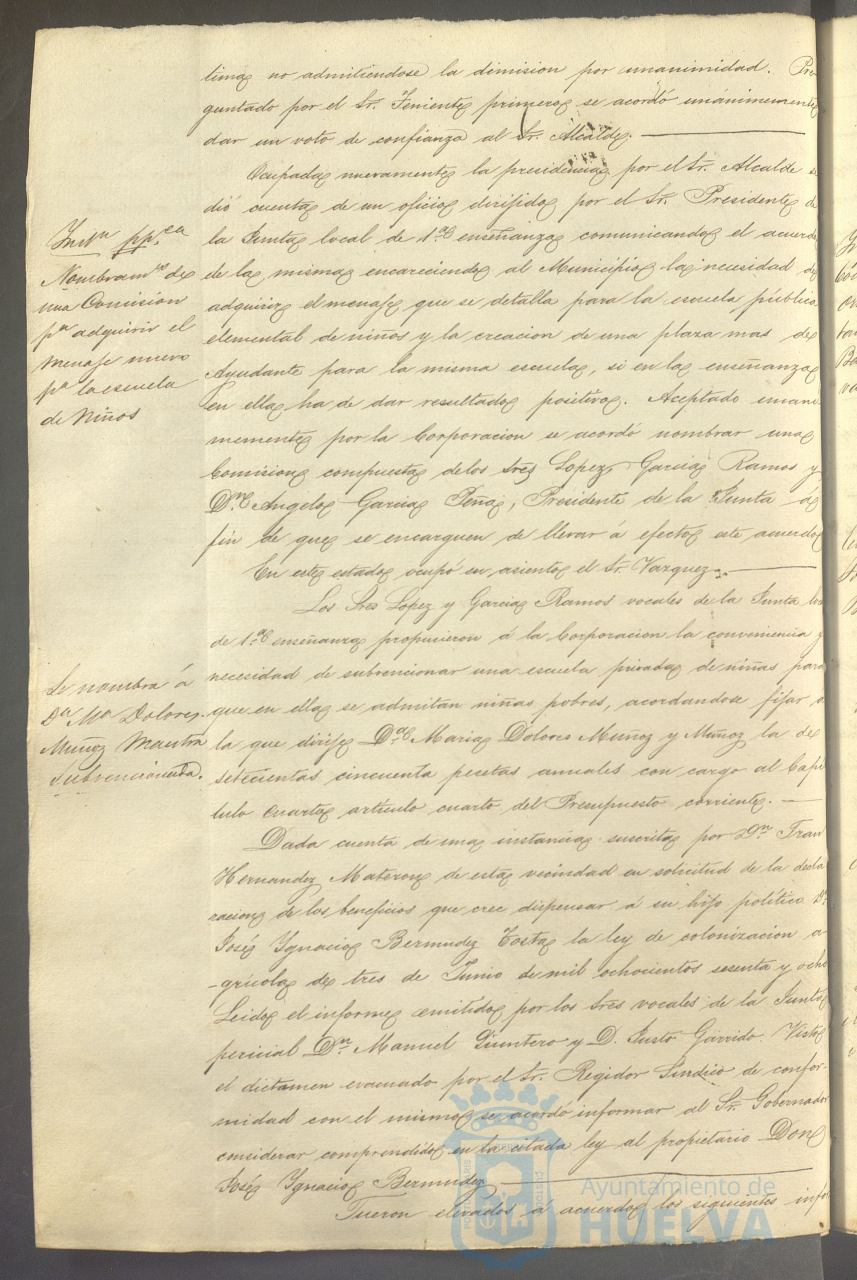 tima no admitiendose la dimision por unanimidad. Pre
guntado por el Sr. Teniente primero se acordó unánimemente
dar un voto de confianza al Sr. Alcalde.
Ocupada nuevamente la presidencia por el Sr. Alcalde se
dió cuenta de un oficio dirijido por el Sr. Presidente de
la Junta local de 1.ª enseñanza comunicando el acuerdo
de la misma encareciendo al Municipio la necesidad de
adquirir el menaje que se detalla para la escuela pública
elemental de niños y la creacion de una plaza mas de
Ayudante para la misma escuela, si en la enseñanza
en ella ha de dar resultado positivo. Aceptado unani
memente por la Corporacion se acordó nombrar una
Comision compuesta delos Sres Lopez, Garcia Ramos y
Dn. Angel Garcia Peña, Presidente de la Junta á
fin de que se encarguen de llevar á efecto este acuerdo
En este estado ocupó su asiento el Sr. Vazquez.
Los Sres Lopez y Garcia Ramos vocales de la Junta local
de 1.ª enseñanza propusieron á la Corporacion la conveniencia y
necesidad de subvencionar una escuela privada de niñas para
que en ella se admitan niñas pobres, acordandose fijar á
la que dirije D.ª Maria Dolores Muñoz y Muñoz la de
setecientas cincuenta pesetas anuales con cargo al Capi
tulo cuarto artículo cuarto del Presupuesto corriente.
Dada cuenta de una instancia suscrita por Dn. Fran
Hernandez Materon de esta vecindad en solicitud de la decla
racion de los beneficios que cree dispensar á su hijo político Dn.
José Ygnacio Bermudez Tosta la ley de colonizacion a-
-grícola de tres de Junio de mil ochocientos sesenta y ocho
Leido el informe emitido por los Sres vocales de la Junta
pericial Dn. Manuel Quintero y D. Justo Garrido. Visto
el dictamen evacuado por el Sr. Regidor Sindico de confor-
midad con el mismo se acordó informar al Sr. Gobernador
considerar comprendido en la citada ley al propietario Don
José Ygnacio Bermudez
Fueron elevados á acuerdo los siguientes infor
Instn. pp.ca
Nombramto de
una Comision
pa adquirir el
menaje nuevo
pa la escuela
de Niños
Se nombra á
Da Ma Dolores
Muñoz Maestra
subvencionada.
Ayuntamiento de
HUELVA